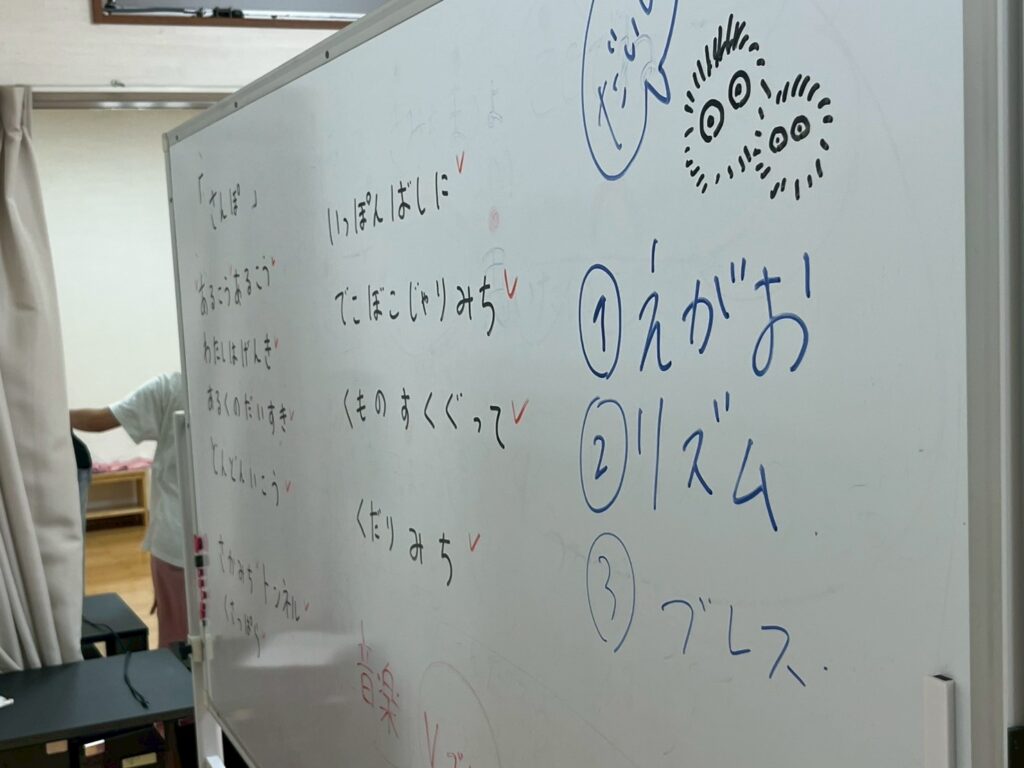 「さんぽ」
あるこうあるこう
わたしはげんき
あるくのだいすき
どんどんいこう
さかみちトンネル
くさっぱら
いっぽんばしに
でこぼこじゃりみち
くものすくぐって
くだりみち
音楽
①えがお
②リズム
③ブレス